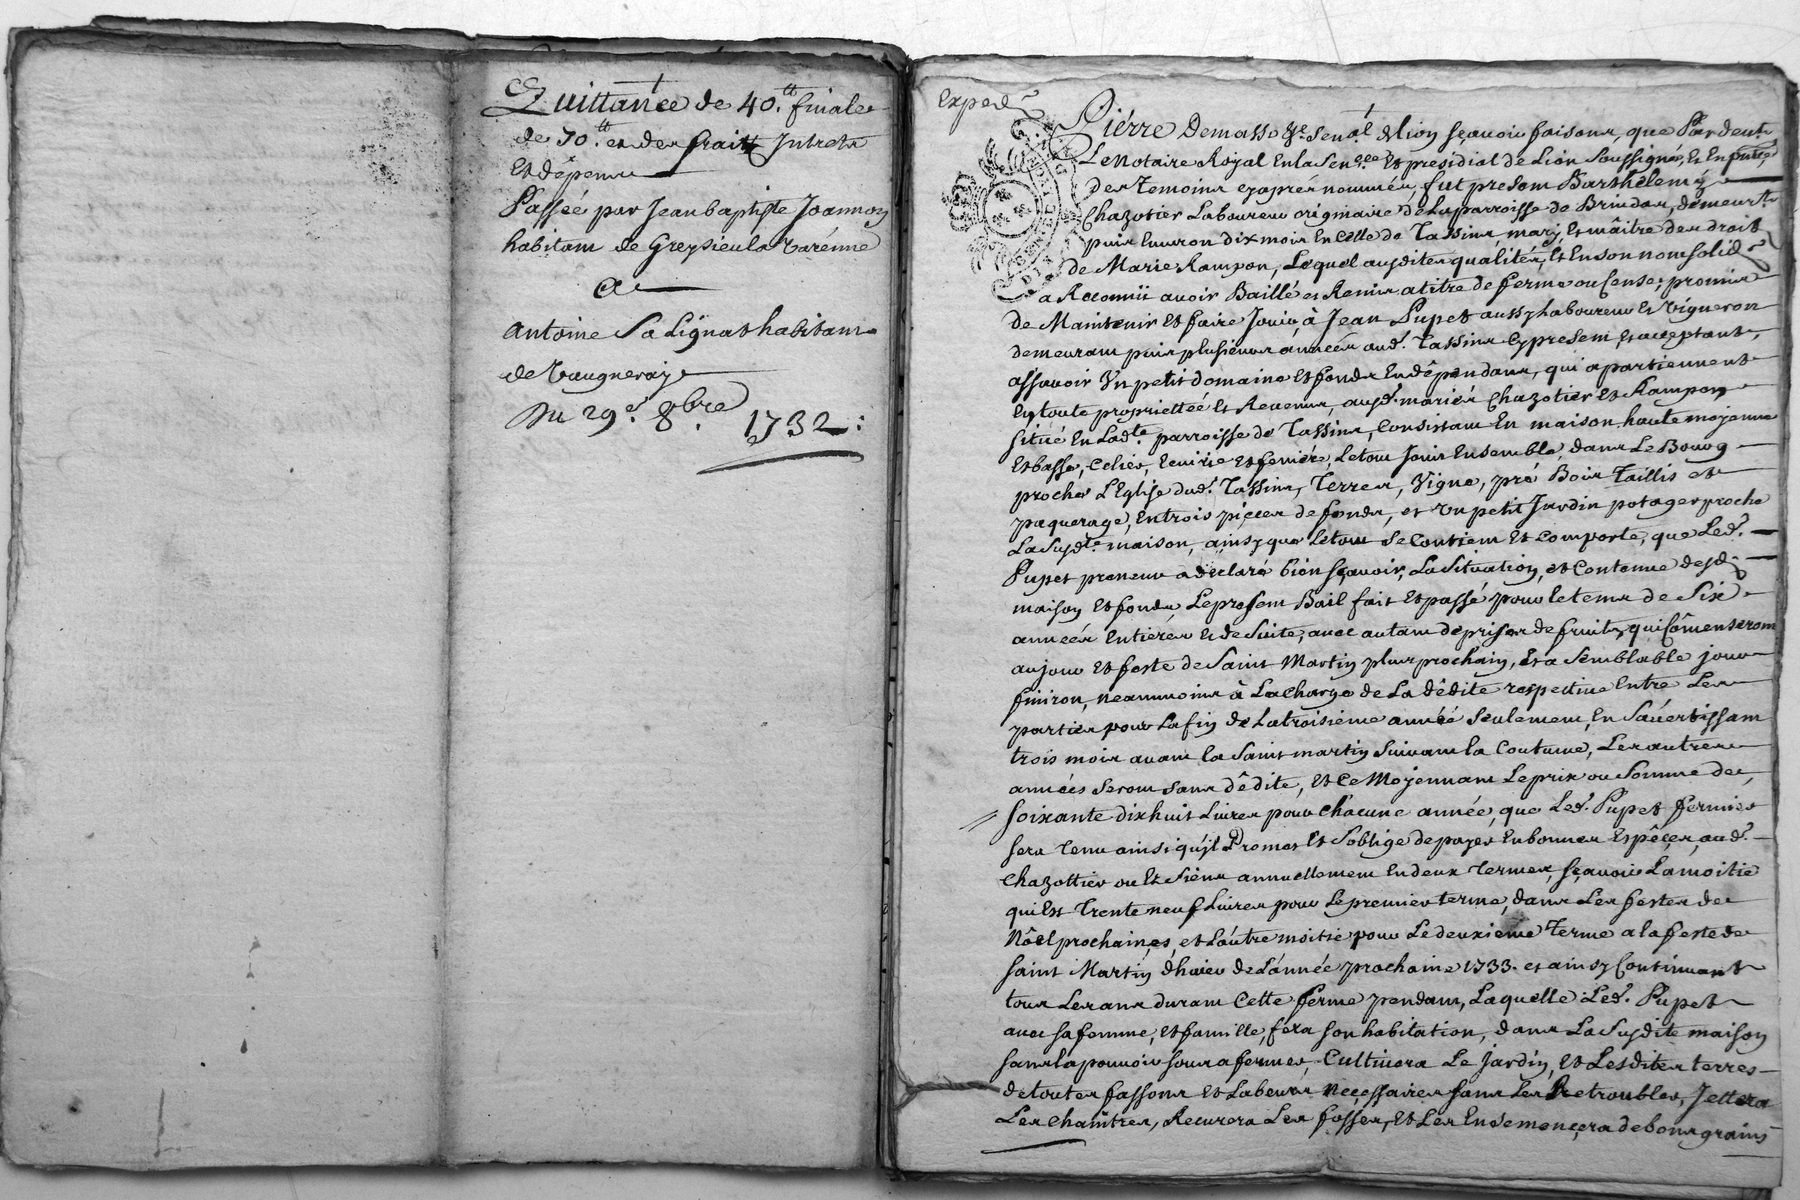 Quittance de 40.tt finale
de 70.tt et des fraits Intrets
Et dépens
Passée par Jean baptiste Joannon
habitant de Greysieu la Varénne
A
Antoine Salignat habitant
de Vaugneray
Du 29e. 8bre. 1732:
Exped.
Pierre Demasso Sr. Senal. de Lion sçavoir faisons, que Par devt
Le Notaire Royal En la Sencée Et presidial de Lion Soussigné, Et En presce
des Temoins cyaprés nommés, fut presem Barthelemy
Chazotier Laboureur originaire de La parroisse de Brindas, demeurt
puis Environ dix mois En Celle de Tassins, mary, Et maître des droits
de Marie Rampon, Lequel ausdites qualités, Et En son nom solide
a Reconnü avoir Baillé et Remis a titre de ferme ou Cense, promis
de Maintenir Et faire Jouir, à Jean Pupet aussy Laboureur Et Vigneron
demeurant puis plusieurs années aud. Tassins Cy present, Et acceptant,
assavoir Vn petit domaine Et fonds En dépendans, qui apartiennent
En toute proprietteé Et Revenus, ausd. mariés Chazotier Et Rampon
Situé En Ladte. parroisse de Tassins, Consistant En maison haute moyenne
Et basse, Celier, Ecuirie Et feniére, Le tout Joint Ensemble, dans Le Bourg
proche L'Eglise dud. Tassins, Terres, Vigne, pré Bois Taillis et
paquerage, En trois piéces de fonds, et Vn petit Jardin potager proche
La Susdte. maison, ainsy que Le tout Se Contient Et Comporte, que Led.
Pupet preneur a declaré bien Sçavoir, La Situation, et Contenue desd.
maison Et fonds Le present Bail fait Et passé pour Le tems de Six
années Entiéres Et de Suite, avec autant de prises de fruits, qui Cômenseront
au jour Et feste de Saint Martin plus prochain, Et a Semblable jour
finiron, neammoins à La charge de La dédite respective Entre Les
parties pour La fin de La troisiéme année Seulement, En S'avertissant
trois mois avant La Saint martin Suivant la Coutume, Les autres
années Seront Sans dédite, Et Ce Moyennant Le prix ou Somme de
Soixante dix huit Livres pour Chacune année, que Led. Pupet fermier
sera Tenu ainsi qu'il Promet Et S'oblige de payer En bonnes Espéces, aud.
Chazottier ou Et Siens annuellement En deux Termes, Sçavoir La moitié
qui Est Trente neuf Livres pour Le premier terme, dans Les festes de
Nöel prochaines, et L'autre moitié pour Le deuxieme Terme a la feste de
Saint Martin d'hiver de L'année prochaine 1733. et ainsy Continuant
tous Les ans durant Cette ferme pendant, Laquelle Led. Pupet
avec sa femme, Et famille, fera son habitation, dans La Susdite maison
sans la pouvoir sous afermer, Cultivera Le Jardin, Et Lesdites terres
de toutes fassons Et Labeurs neçessaires sans Les Retroubler, Jettera
Les chaintres, Recurera Les fosses, Et Les Ensemençera de bons grains